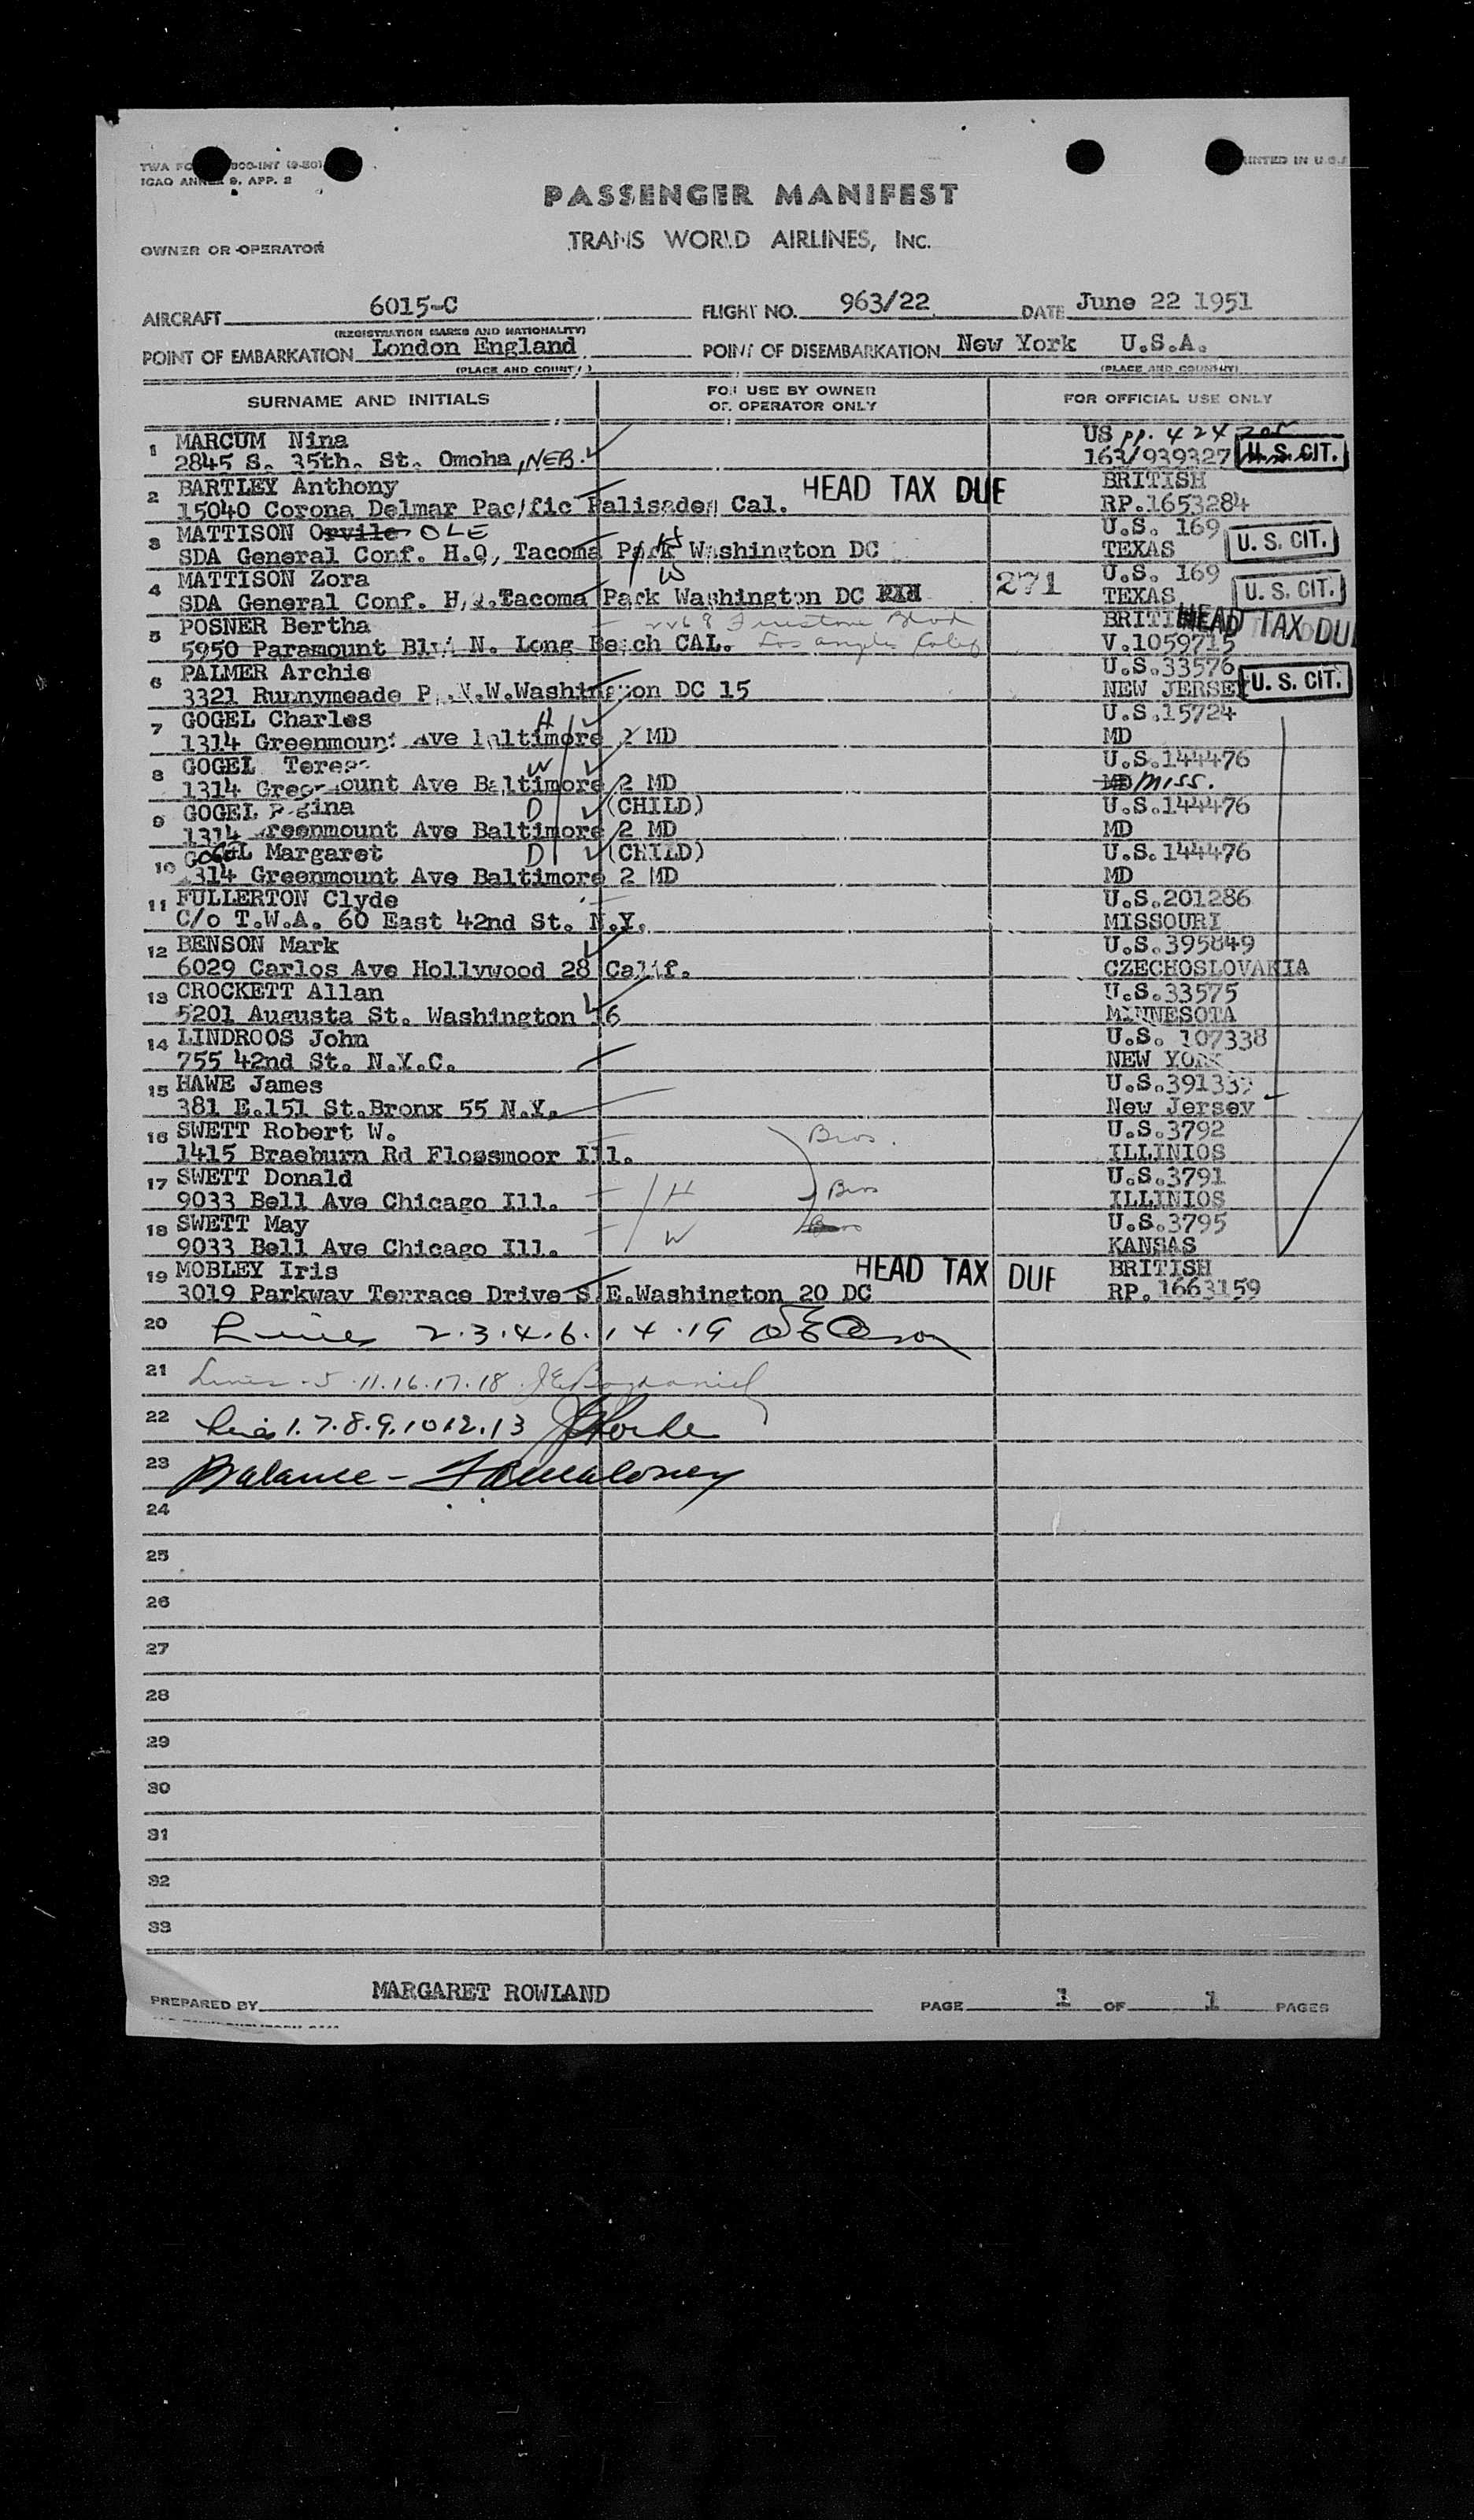 TWA FO 300-INT (9-50)
ICAO ANNEX 9, APP. 2
PRINTED IN U.S.A
PASSENGER MANIFEST
OWNER OR OPERATOR
TRANS WORLD AIRLINES, INC.
AIRCRAFT 6015-C FLIGHT NO. 963/22 DATE June 22 1951
(REGISTRATION MARKS AND NATIONALITY)
POINT OF EMBARKATION London England POINT OF DISEMBARKATION New York U.S.A.
(PLACE AND COUNTRY) (PLACE AND COUNTRY)
SURNAME AND INITIALS FOR USE BY OWNER OR OPERATOR ONLY FOR OFFICIAL USE ONLY
1 MARCUM Nina US pp. 424
2845 S. 35th. St. Omoha, NEB. 163/939327 U. S. CIT.
2 BARTLEY Anthony HEAD TAX DUE BRITISH
15040 Corona Delmar Pacific Palisades Cal. RP.1653284
3 MATTISON Orville OLE U.S. 169
SDA General Conf. H.Q, Tacoma Park Washington DC H TEXAS U. S. CIT.
4 MATTISON Zora W U.S. 169
SDA General Conf. H.Q.Tacoma Park Washington DC 271 TEXAS U. S. CIT.
5 POSNER Bertha Firestone Blvd BRITISH HEAD TAX DUE
5950 Paramount Blvd N. Long Beach CAL. Los Angeles Calif V.1059715
6 PALMER Archie U.S.33576
3321 Runnymeade P .N.W.Washington DC 15 NEW JERSEY U. S. CIT.
7 GOGEL Charles H U.S.15724
1314 Greenmount Ave Baltimore 2 MD MD
8 GOGEL Teresa W U.S.144476
1314 Greenmount Ave Baltimore 2 MD MD MISS.
9 GOGEL Regina D (CHILD) U.S.144476
1314 Greenmount Ave Baltimore 2 MD MD
10 GOGEL Margaret D (CHILD) U.S.144476
1314 Greenmount Ave Baltimore 2 MD MD
11 FULLERTON Clyde U.S.201286
C/o T.W.A. 60 East 42nd St. N.Y. MISSOURI
12 BENSON Mark U.S.395849
6029 Carlos Ave Hollywood 28 Calif. CZECHOSLOVAKIA
13 CROCKETT Allan U.S.33575
5201 Augusta St. Washington 16 MINNESOTA
14 LINDROOS John U.S. 107338
755 42nd St. N.Y.C. NEW YORK
15 HAWE James U.S.39133
381 E.151 St.Bronx 55 N.Y. New Jersey
16 SWETT Robert W. Bros. U.S.3792
1415 Braeburn Rd Flossmoor Ill. ILLINIOS
17 SWETT Donald H Bros U.S.3791
9033 Bell Ave Chicago Ill. ILLINIOS
18 SWETT May W U.S.3795
9033 Bell Ave Chicago Ill. KANSAS
19 MOBLEY Iris HEAD TAX DUE BRITISH
3019 Parkway Terrace Drive S.E.Washington 20 DC RP.1663159
20 Lines 2.3.4.6.14.19
21 Lines 5.11.16.17.18
22 Lines 1.7.8.9.10 12.13
23 Balance -
24
25
26
27
28
29
30
31
32
33
PREPARED BY MARGARET ROWLAND PAGE 1 OF 1 PAGES